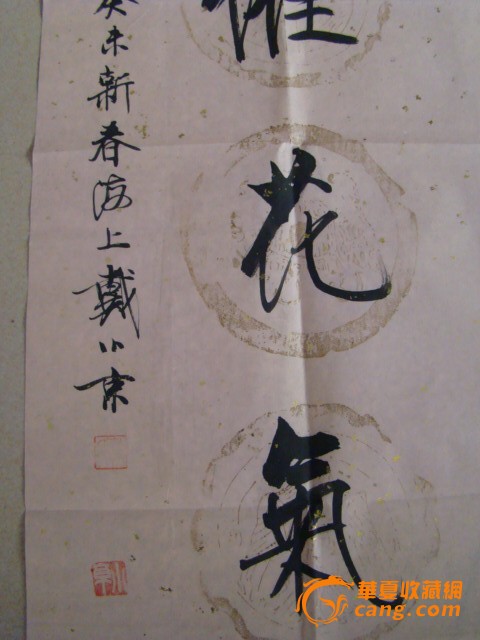 花氣
癸未新春海上戴小京
小京
華夏收藏網
cang.com